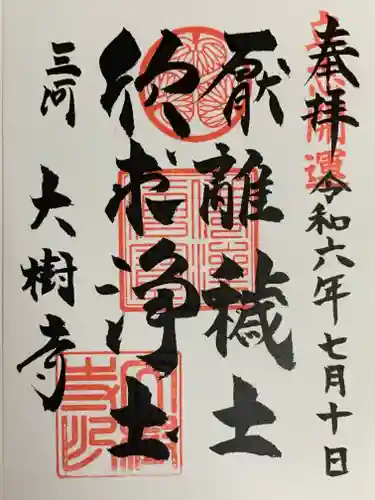 奉拝
令和六年七月十日
厭離穢土
欣求浄土
三河
大樹寺